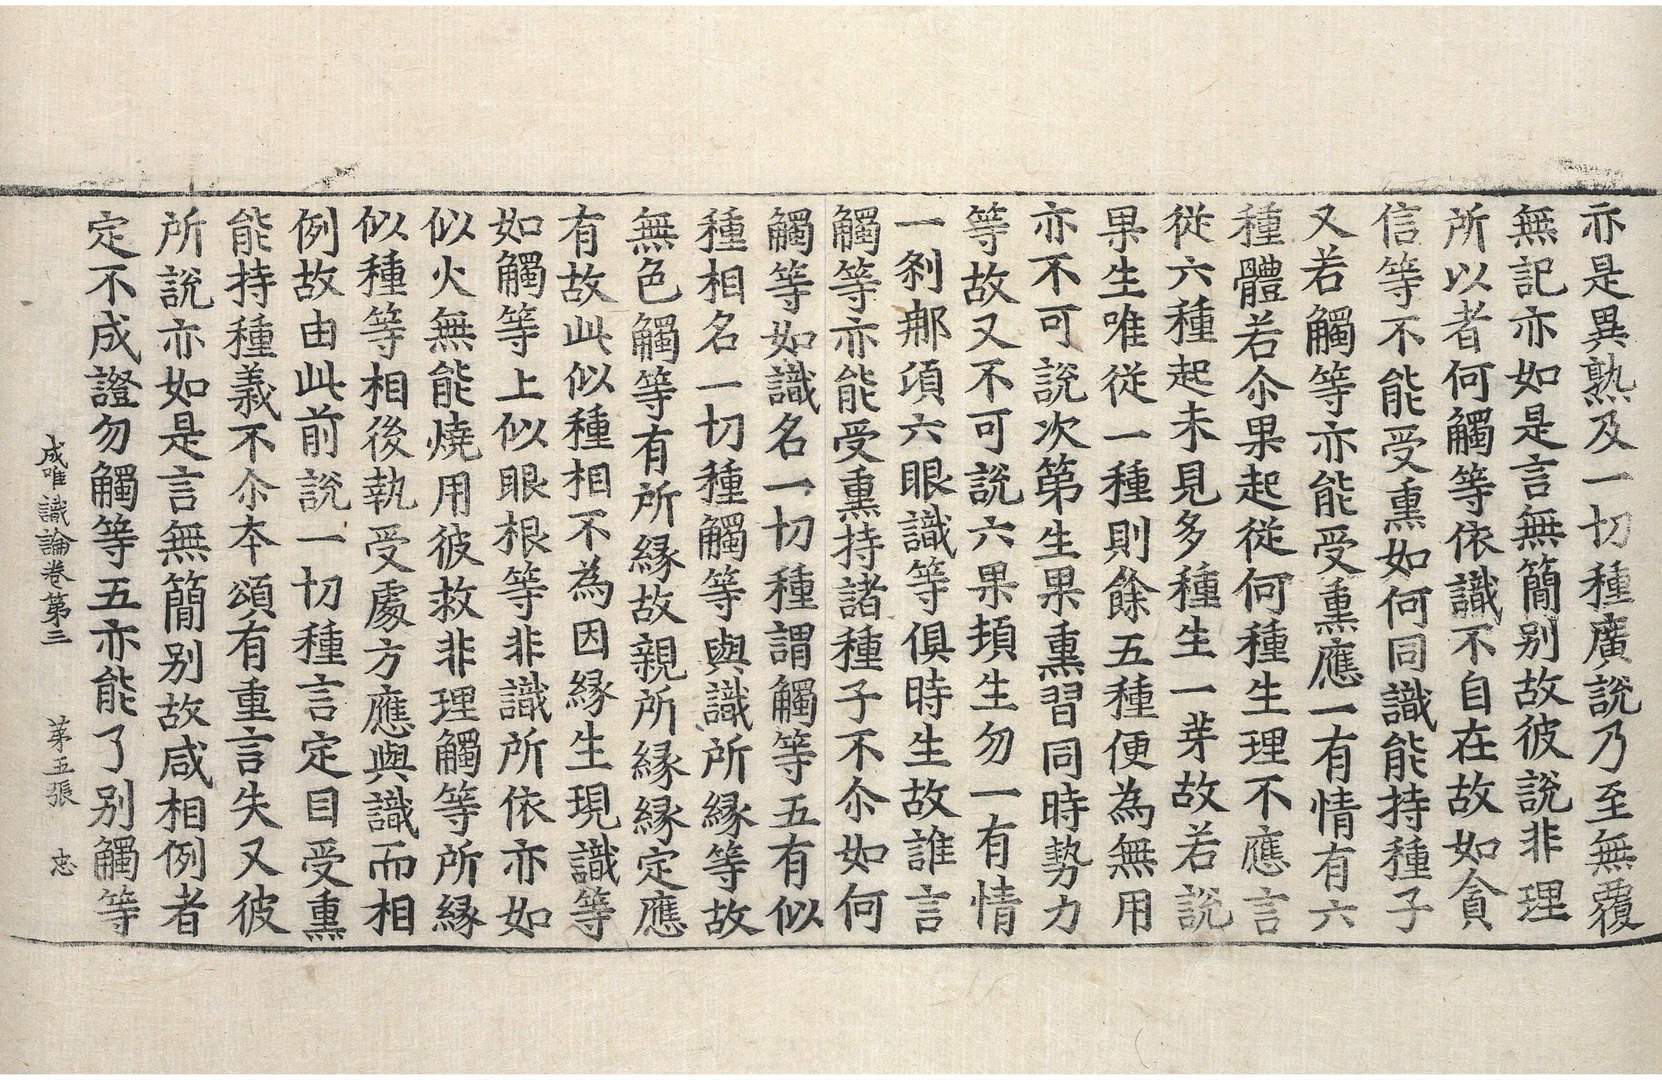 亦是異熟及一切種廣說乃至無覆
無記亦如是言無簡别故彼說非理
所以者何觸等依識不自在故如貪
信等不能受熏如何同識能持種子
又若觸等亦能受熏應一有情有六
種體若尒果起從何種生理不應言
從六種起未見多種生一芽故若說
果生唯從一種則餘五種便為無用
亦不可說次第生果熏習同時勢力
等故又不可說六果頓生勿一有情
一剎那頃六眼識等俱時生故誰言
觸等亦能受熏持諸種子不尒如何
觸等如識名一切種謂觸等五有似
種相名一切種觸等與識所緣等故
無色觸等有所緣故親所緣緣定應
有故此似種相不為因緣生現識等
如觸等上似眼根等非識所依亦如
似火無能燒用彼救非理觸等所緣
似種等相後執受處方應與識而相
例故由此前說一切種言定目受熏
能持種義不尒本頌有重言失又彼
所說亦如是言無簡别故咸相例者
定不成證勿觸等五亦能了别觸等
成唯識論卷第三 第五張 忠